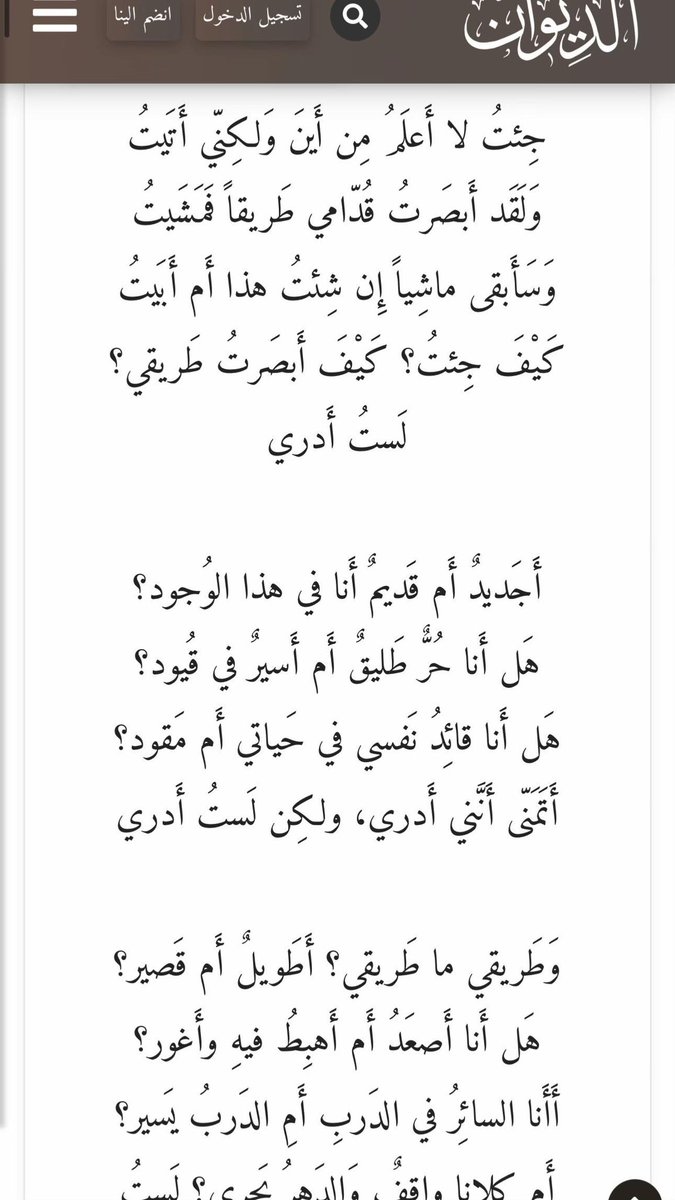 الديوان
تسجيل الدخول
انضم الينا
جِئتُ لا أَعلَمُ مِن أَينَ وَلكِنّي أَتَيتُ
وَلَقَد أَبصَرتُ قُدّامي طَريقاً فَمَشَيتُ
وَسَأَبقى ماشِياً إِن شِئتُ هذا أَم أَبَيتُ
كَيْفَ جِئتُ؟ كَيْفَ أَبصَرتُ طَريقي؟
لَستُ أَدري
أَجَديدٌ أَم قَديمٌ أَنا في هذا الوُجود؟
هَل أَنا حُرٌّ طَليقٌ أَم أَسيرٌ في قُيود؟
هَل أَنا قائِدُ نَفسي في حَياتي أَم مَقود؟
أَتَمَنّى أَنَّني أَدري، ولكِن لَستُ أَدري
وَطَريقي ما طَريقي؟ أَطَويلٌ أَم قَصير؟
هَل أَنا أَصعَدُ أَم أَهبِطُ فيهِ وأَغور؟
أَأَنا السائِرُ في الدَربِ أَمِ الدَربُ يَسير؟
أَم كِلانا واقِفٌ وَالدَهرُ يَجري؟ لَستُ